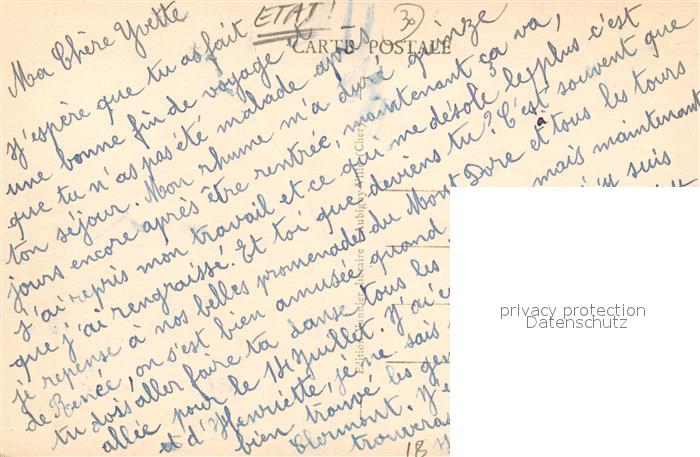 ETAT!
30
CARTE POSTALE
Ma Chère Yvette
J'espère que tu as fait
une bonne fin de voyage &
que tu n'as pas été malade après
ton séjour. Mon rhume m'a duré quinze
jours encore après être rentrée, maintenant ça va,
j'ai repris mon travail et ce qui me désole le plus c'est
que j'ai rengraissé. Et toi que deviens tu? C'est souvent que
je repense à nos belles promenades du Mont Dore et à tous les tours
de Renée, on s'est bien amusée quand mais maintenant
tu dois aller faire ta danse tous les suis
allée pour le 14 Juillet. J'ai
et d'Henriette, je ne sais
bien trouvé les
Clermont. J'
18
privacy protection
Datenschutz